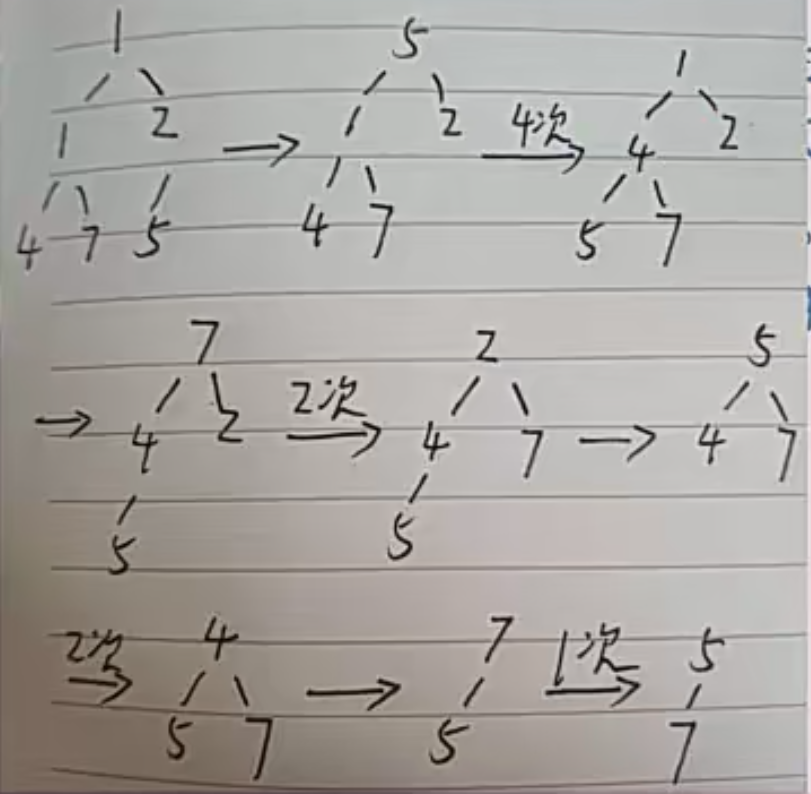 1 5 1
1 2 → 1 2 4次 → 4 2
4 7 5 4 7 5 7
7 2 5
→ 4 2 2次 → 4 7 → 4 7
5 5
2次 → 4 → 7 1次 → 5
5 7 5 7